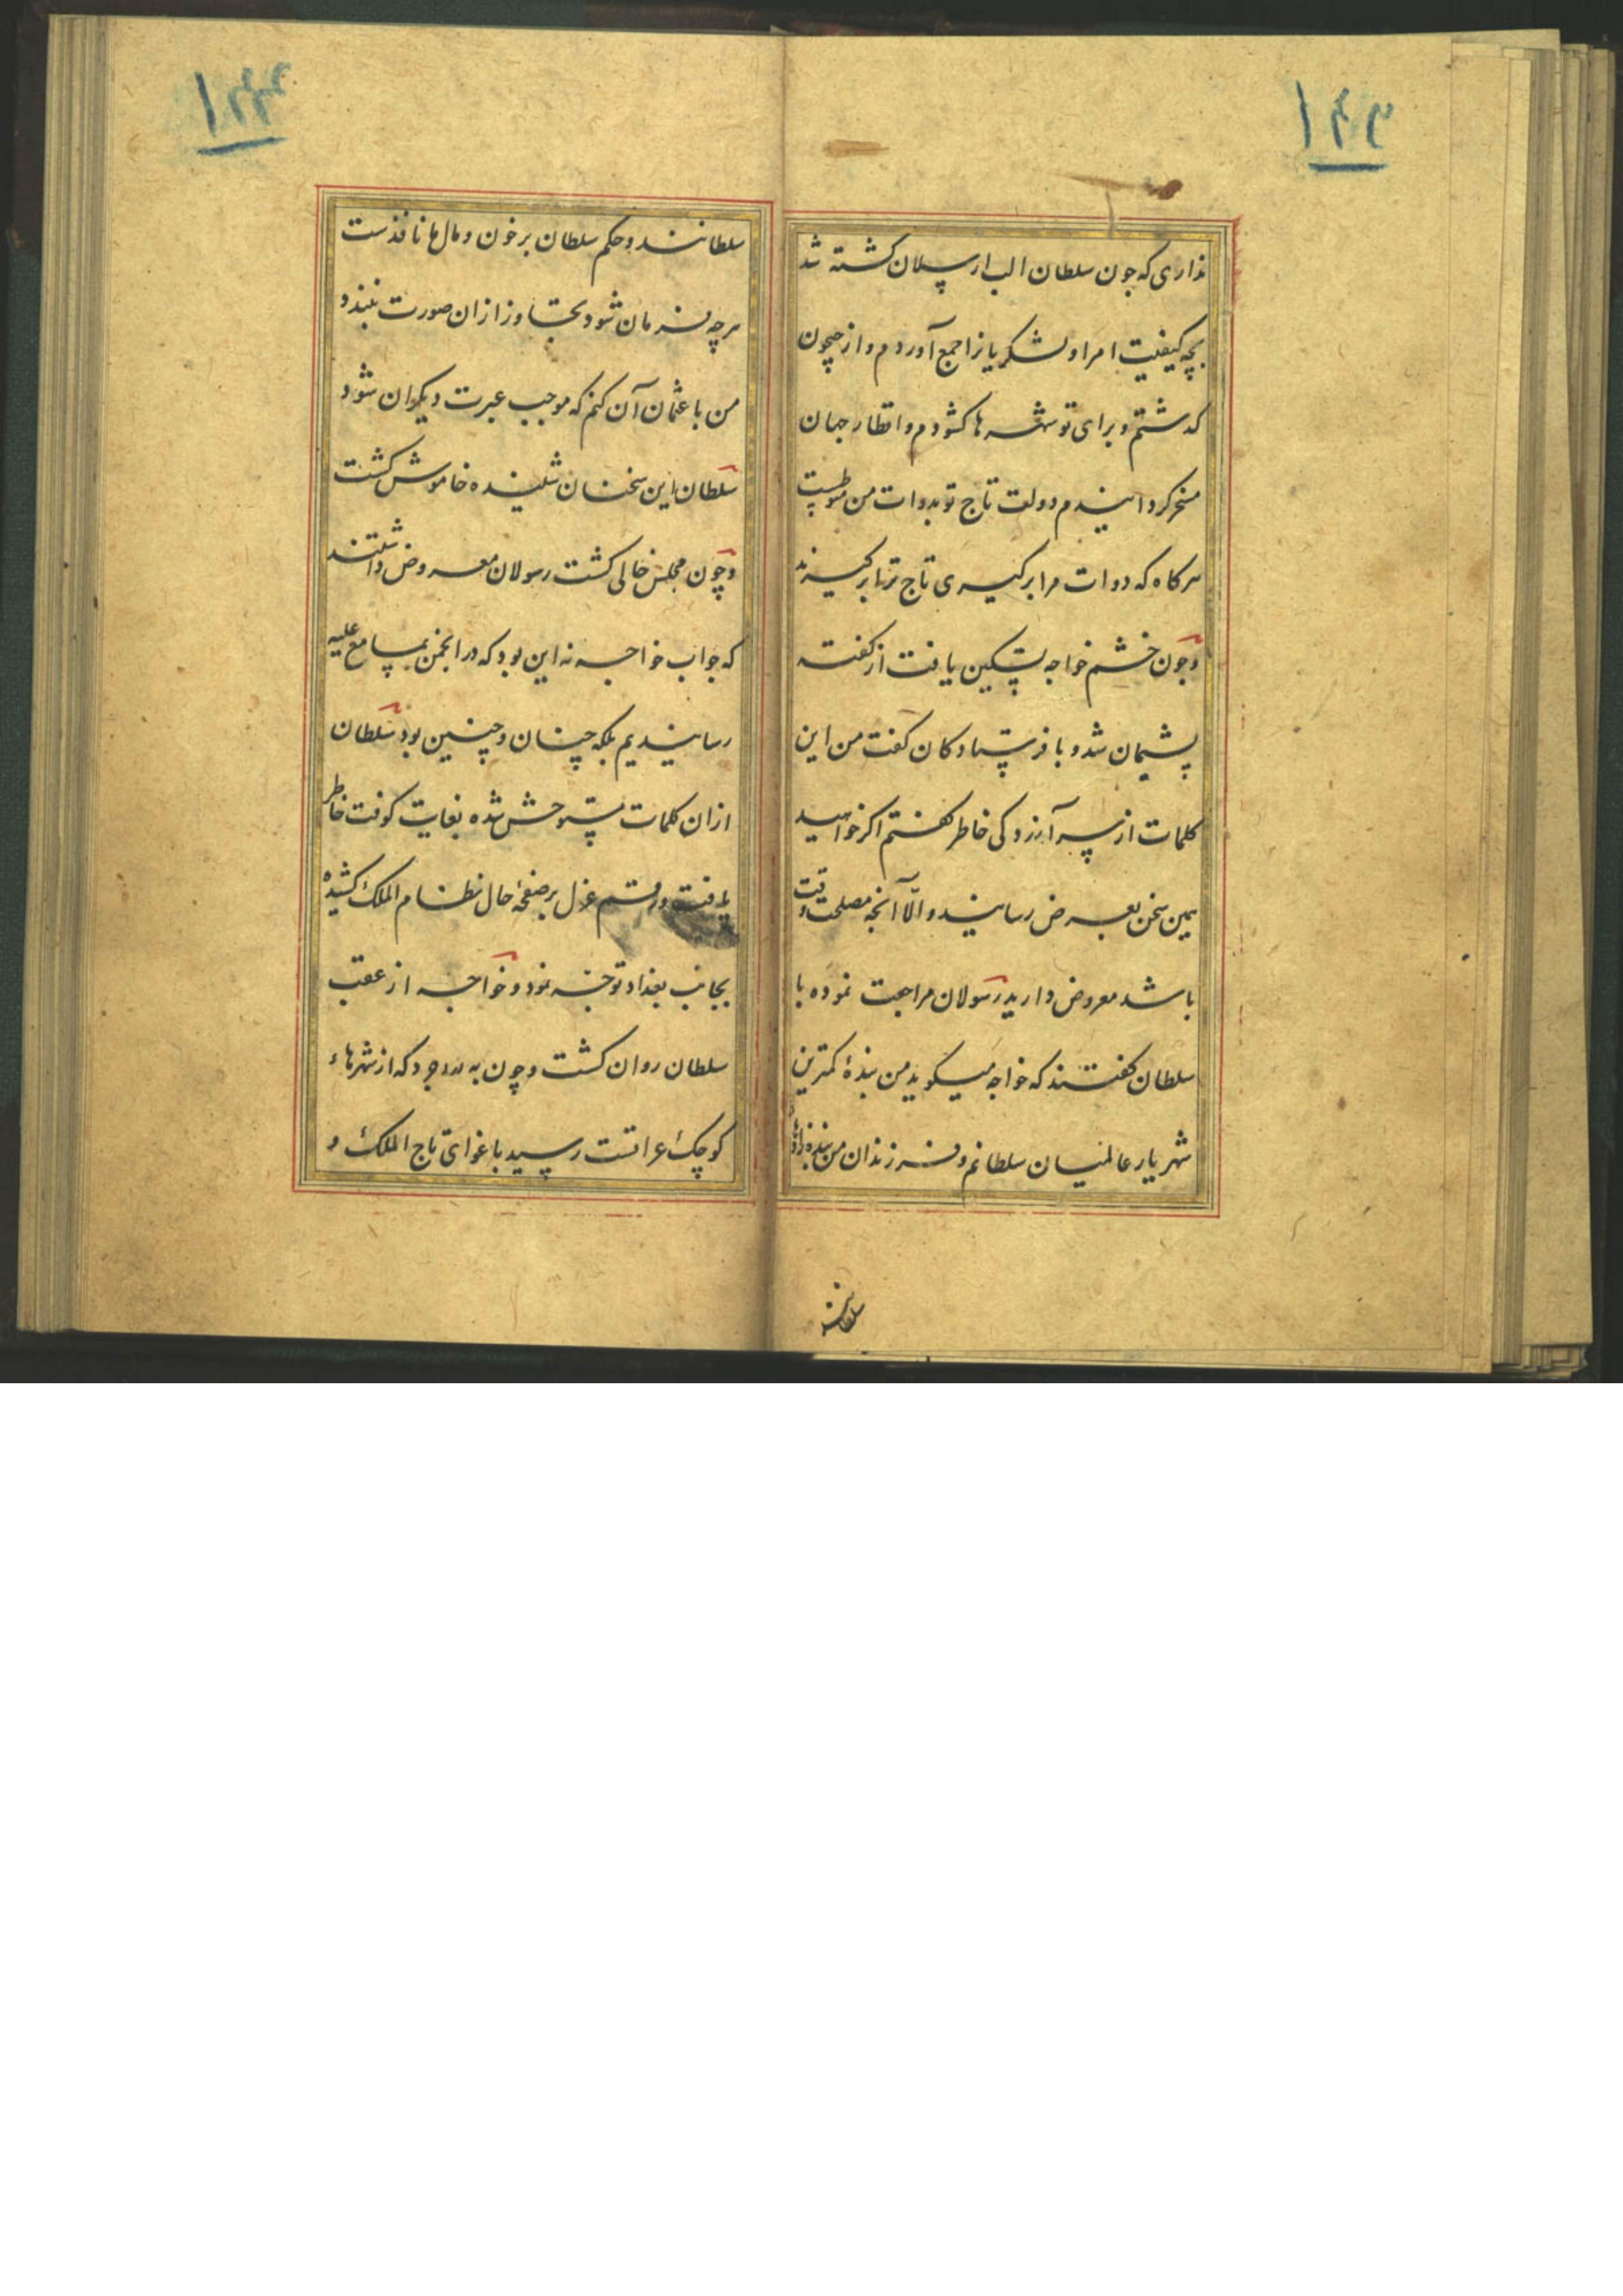 ۱۲۲
نداری که چون سلطان الب ارسلان کشته شد
بچه کیفیت امرا و لشکریانرا جمع آوردم و از جیحون
گذشتم و برای تو شهرها کشودم و اقطار جهان
مسخر کردانیدم دولت تاج تو بدوات من منوطست
هرکاه که دوات مرا برگیری تاج ترا برگیرند
و چون خشم خواجه تسکین یافت از گفته
پشیمان شد و با فرستادکان کفت من این
کلمات از سر آزردکی خاطر کفتم اکر خواهید
همین سخن بعرض رسانید و الّا آنچه مصلحت وقت
باشد معروض دارید رسولان مراجعت نموده با
سلطان کفتند که خواجه میکوید من بندهٔ کمترین
شهریار عالمیان سلطانم و فرزندان من بنده زادهٔ
سلطانند
۱۲۳
سلطانند و حکم سلطان بر خون و مال ما نافذست
هرچه فرمان شود تجاوز از آن صورت نبندد
من با عثمان آن کنم که موجب عبرت دیکران شود
سلطان این سخنان شنیده خاموش کشت
و چون مجلس خالی کشت رسولان معروض داشتند
که جواب خواجه نه این بود که در انجمن بمسامع علیه
رسانیدیم بلکه چنان و چنین بود سلطان
از ان کلمات متوحش شده بغایت کوفت خاطر
یافت و رقم عزل بر صفحهٔ حال نظام الملک کشیده
بجانب بغداد توجه نمود و خواجه از عقب
سلطان روان کشت و چون به بروجرد که از شهرهاء
کوچک عراقست رسید باغوای تاج الملک و